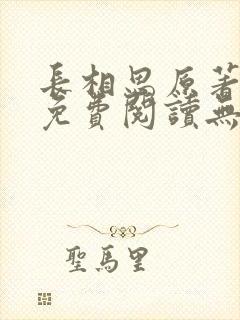 長相思原著
免費閱讀無
聖馬里